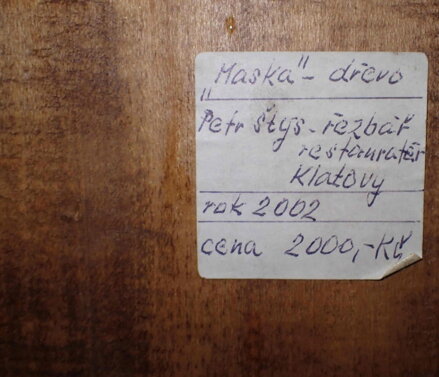 „Maska" - dřevo
Petr Štys - řezbář
restauratér
Klatovy
rok 2002
cena 2000,-Kč